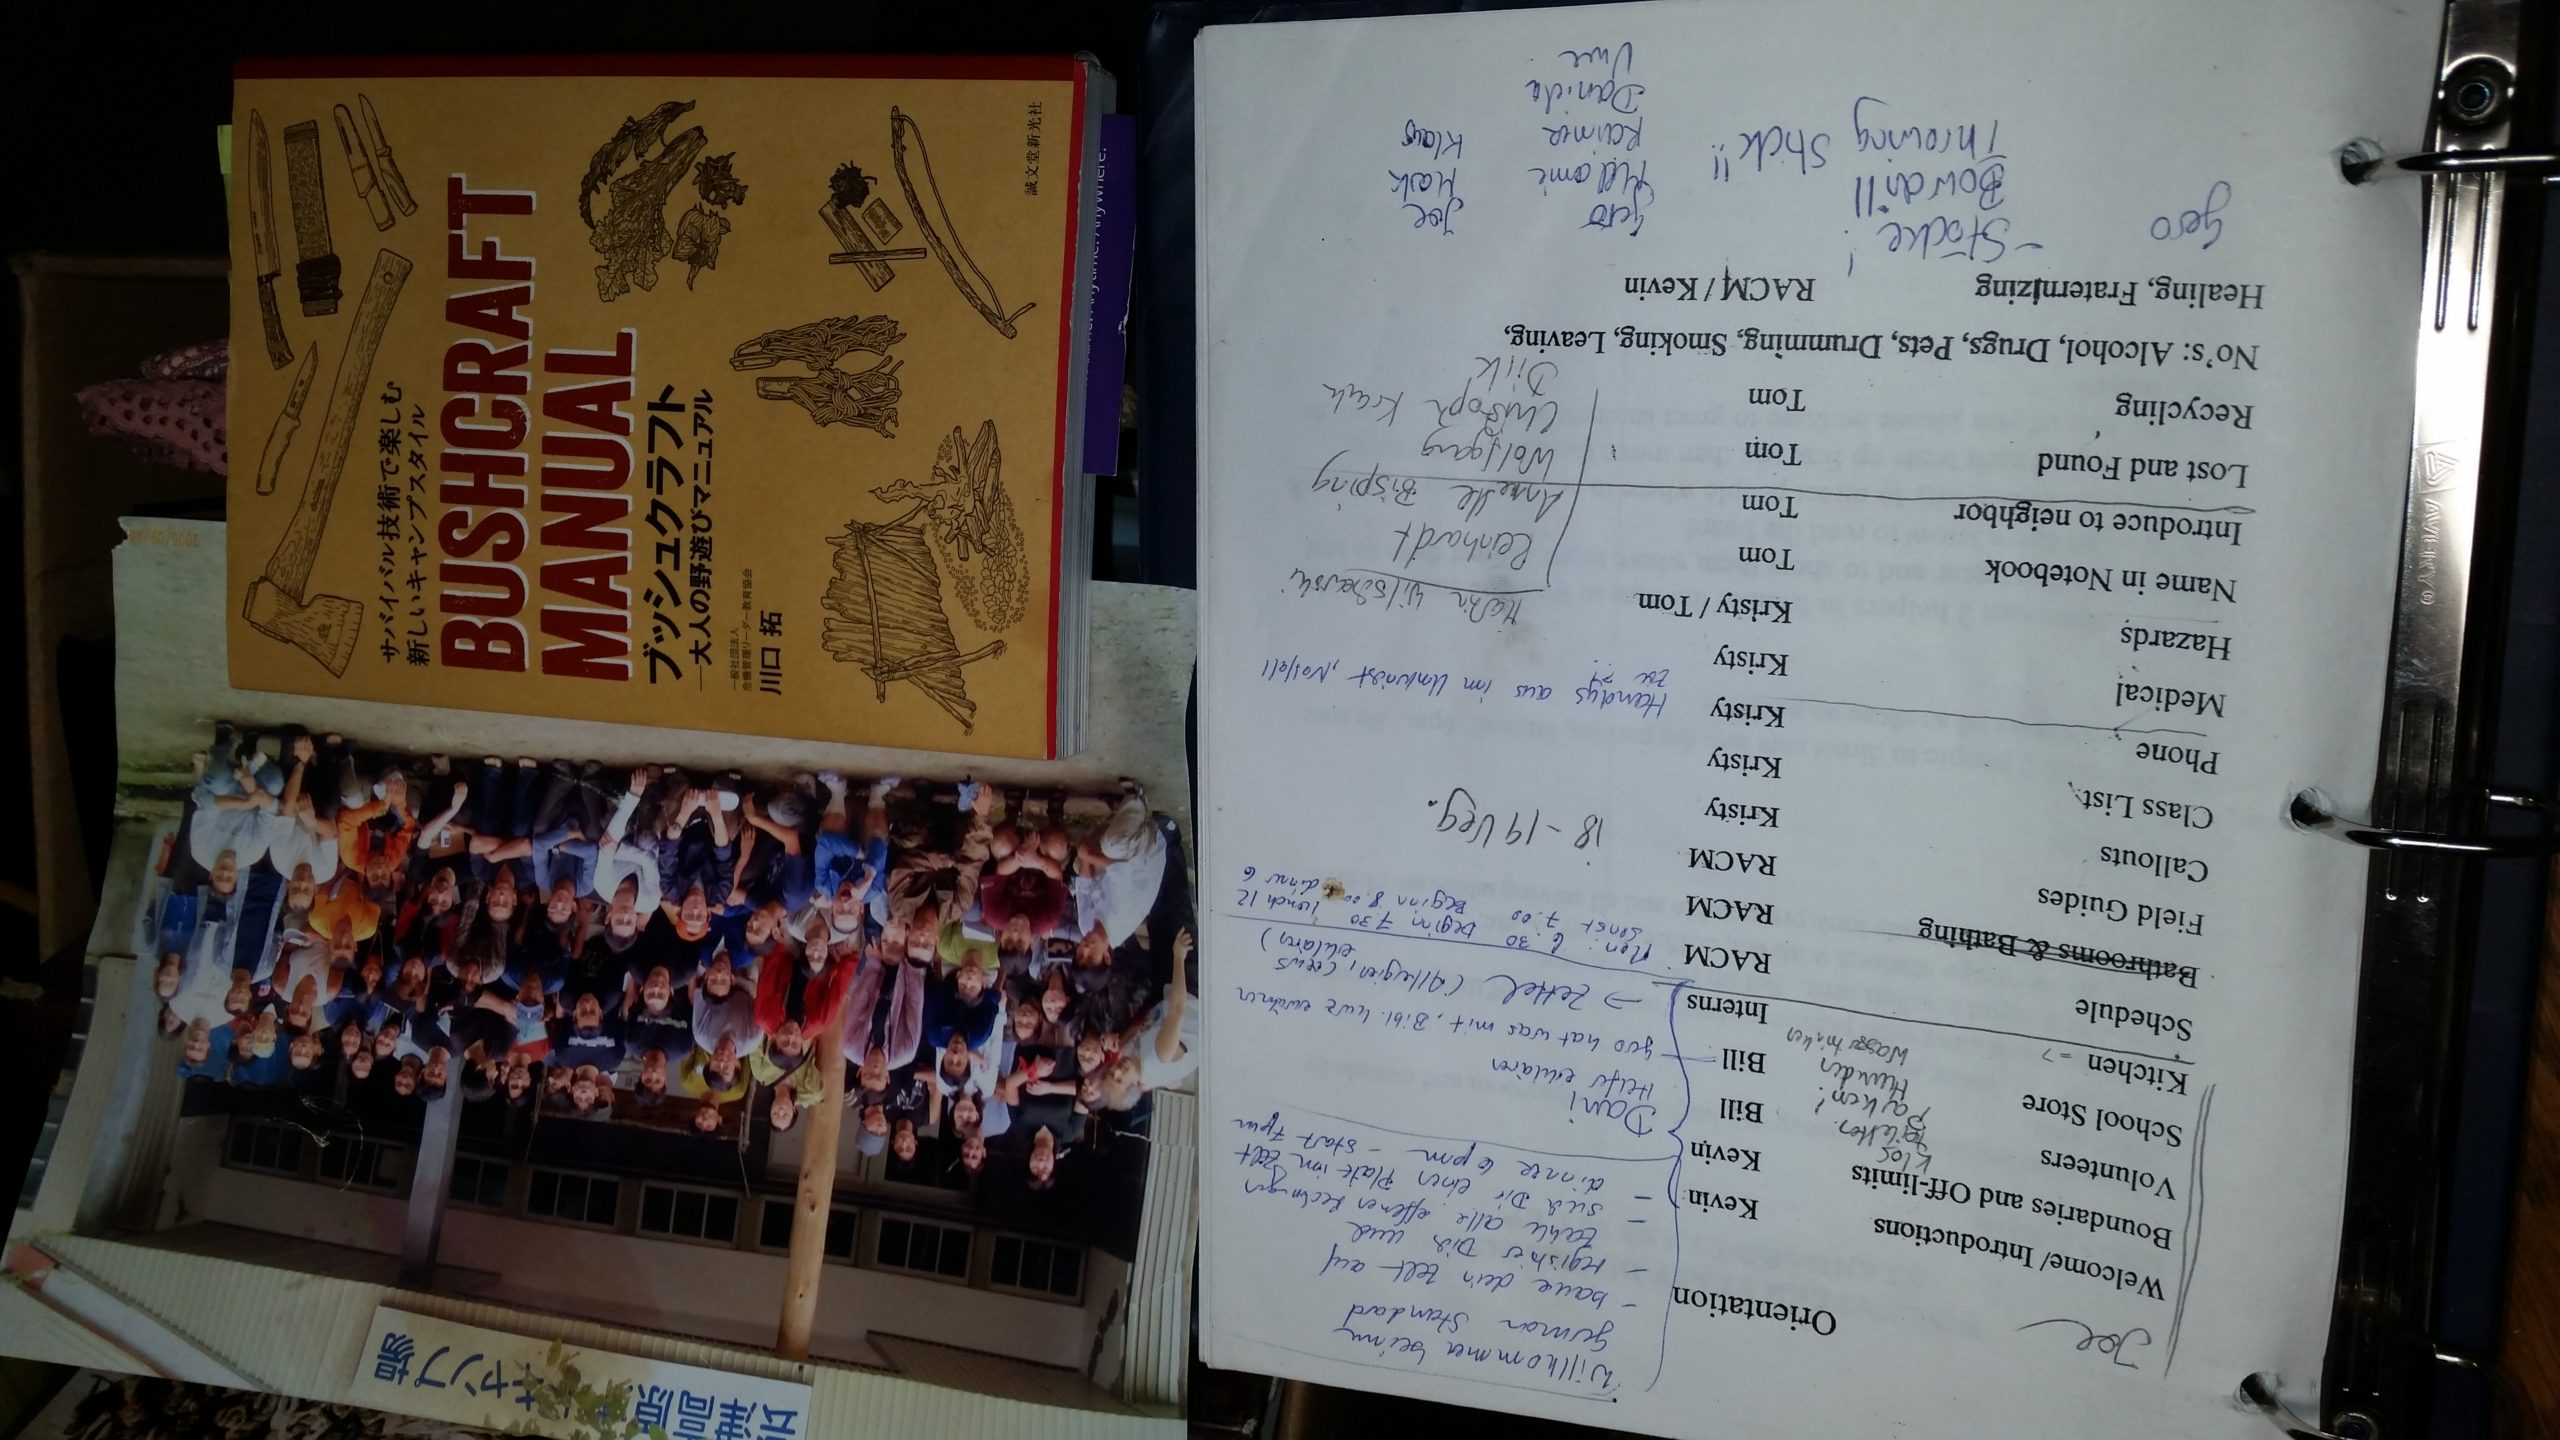 BUSHCRAFT
MANUAL
サバイバル技術で楽しむ
新しいキャンプスタイル
ブッシュクラフト
―大人の野遊びマニュアル
一般社団法人
危機管理リーダー教育協会
川口 拓
誠文堂新光社
Anytime. Anywhere.
2005/09/
高原
キャンプ場
Joe
Orientation
Welcome/ Introductions Kevin
Boundaries and Off-limits Kevin
Volunteers Bill
School Store Bill
Kitchen => Interns
Schedule RACM
Bathrooms & Bathing RACM
Field Guides RACM
Callouts Kristy
Class List Kristy
Phone Kristy
Medical Kristy
Hazards Kristy / Tom
Name in Notebook Tom
Introduce to neighbor Tom
Lost and Found Tom
Recycling Tom
No's: Alcohol, Drugs, Pets, Drumming, Smoking, Leaving,
Healing, Fraternizing RACM / Kevin
Willkommen beim
german Standard
- baue dein Zelt auf
- registrier Dich und
zahle alle offenen Rechnungen
- such Dir einen Platz im Zelt
- dinner 6 pm - start 7pm
Dani
Helfer erklären
Gero hat was mit, Bibl. kurz erwähnen
-> Zettel (Allergien, Crews
erklären)
Mon: 6.30 begin 7.30
sonst 7.00 Begin 8.00
lunch 12
dinner 6
Klos
Toiletten
Parken!
Wasser trinken
18-19 Veg.
Handys aus im Unterricht, Notfall
Reinhardt
Annette Bisping
Wolfgang
Christoph
Dirk
Gero
- Stöcke!
Bowdrill
Throwing Stick!!
Gero
Melanie
Daniela
Uwe
Joe
Maik
Klaus
AVERY